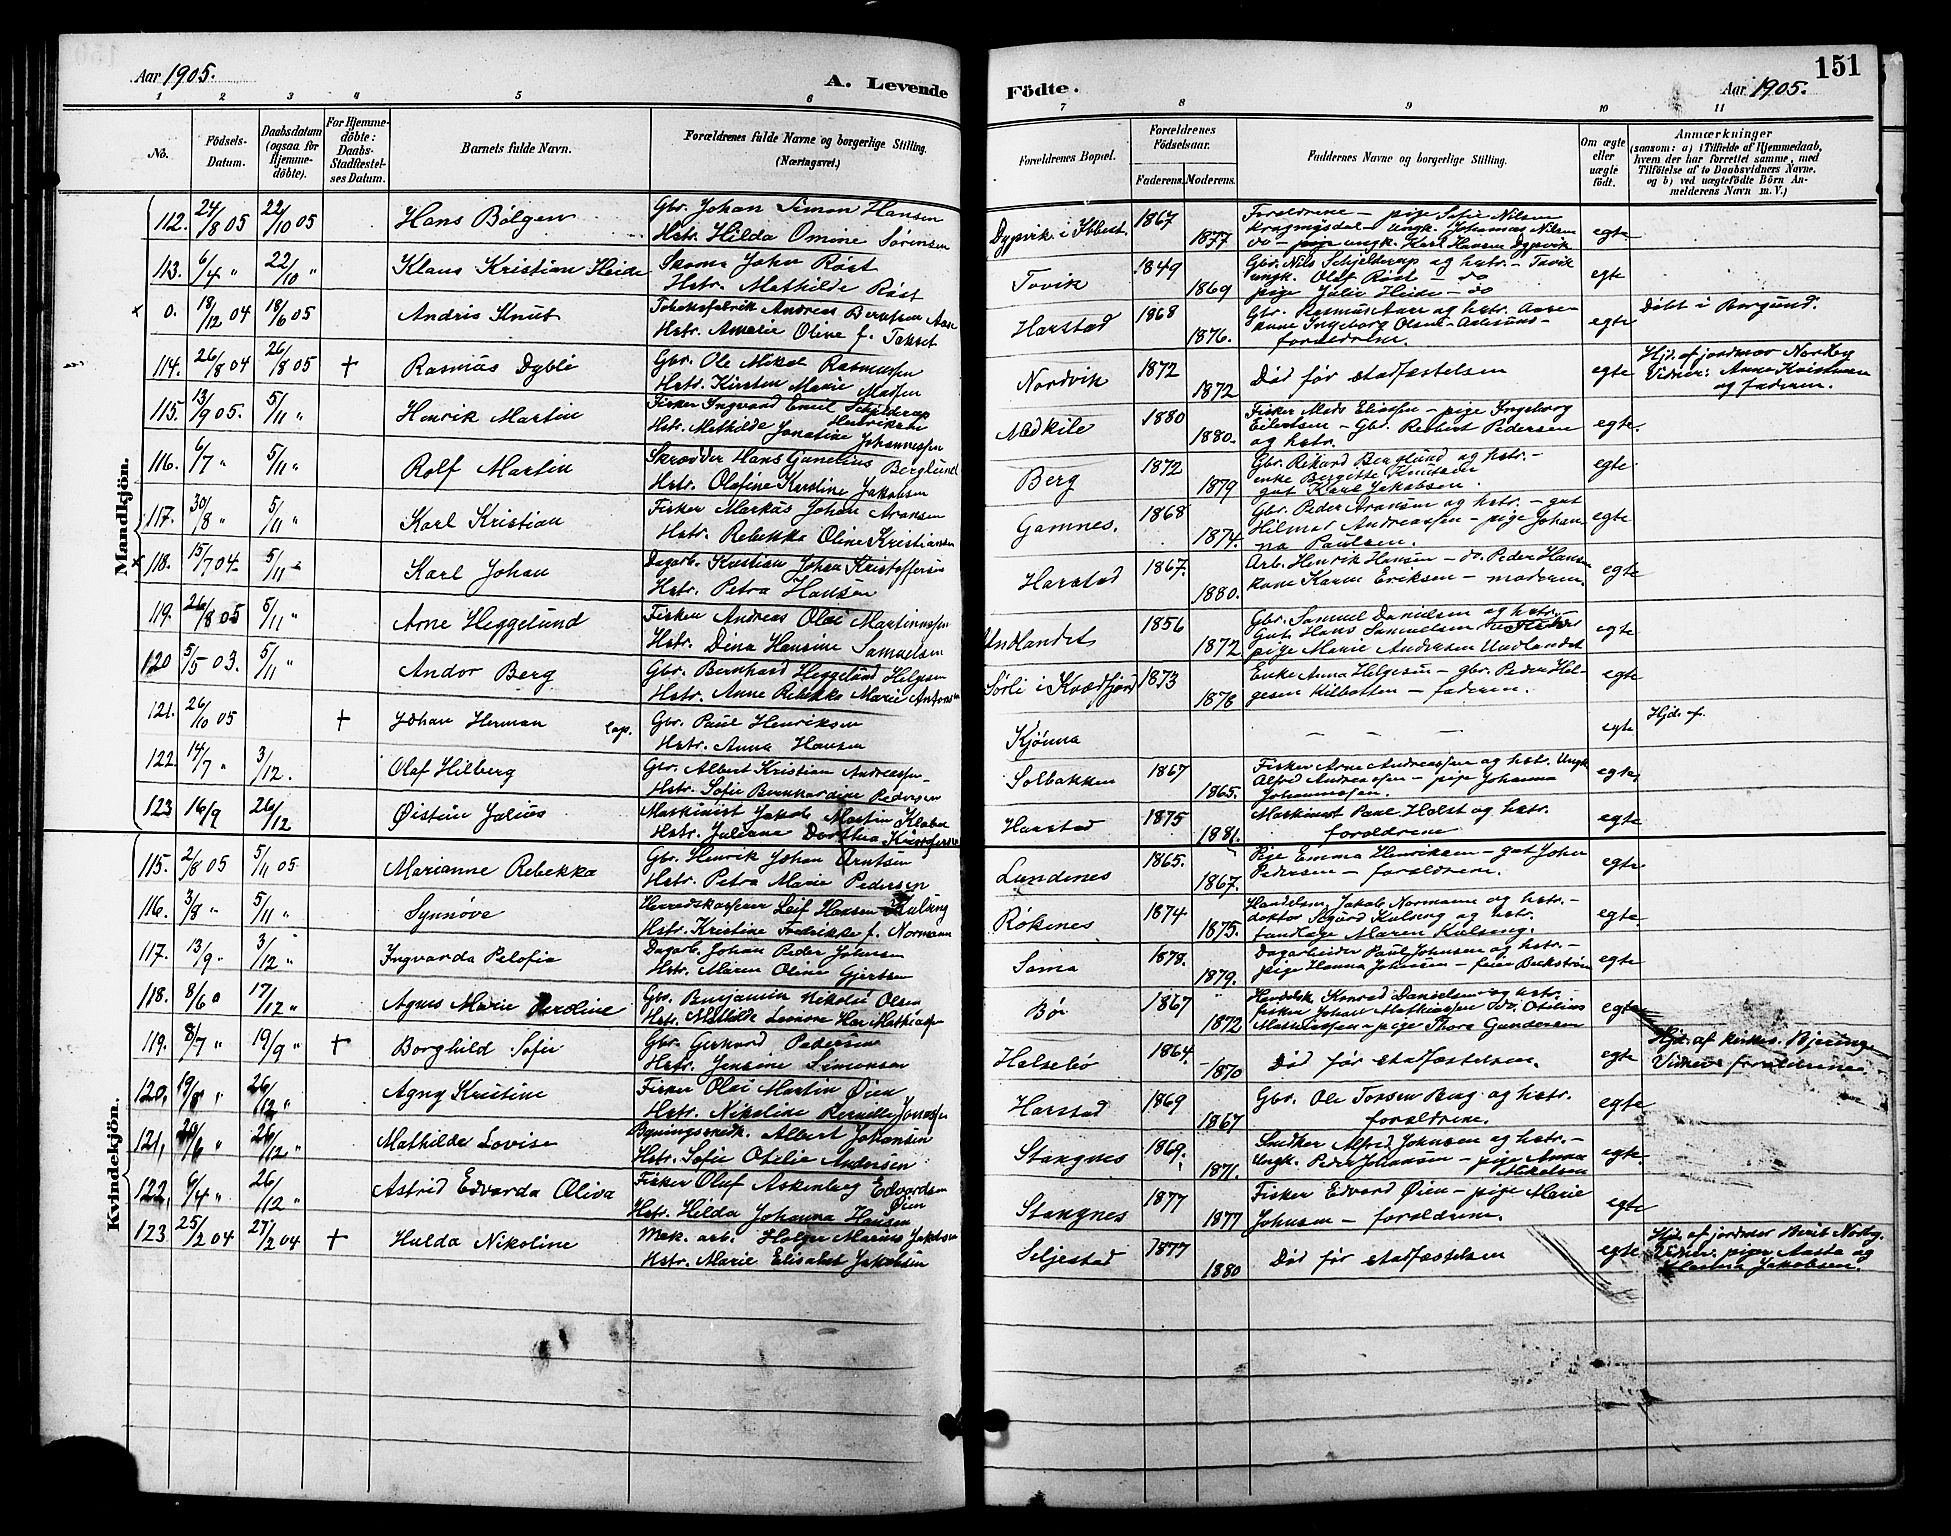 Aar 1905.
A. Levende
1 2 3 4 5 6
No.
Födsels-Datum.
Daabsdatum (ogsaa for Hjemme-døbte).
For Hjemme-döbte: Daabs-Stadfæstel-ses Datum.
Barnets fulde Navn.
Forældrenes fulde Navne og borgerlige Stilling. (Næringsvei.)
Mandkjön.
112. 24/8 05 22/10 05 Hans Bölgen Gbr. Johan Simon Hansen
Hstr. Hilda Omine Sørensen
113. 6/4 " 22/10 " Klaus Kristian Heide Skom. John Røst
Hstr. Mathilde Røst
x 0. 18/12 04 18/6 05 Andris Knut Tobaksfabrik Andreas Berntsen Aase
Hstr. Amalie Oline f.
114. 26/8 04 26/8 05 + Rasmus Dyblie Gbr. Ole Mikal Rasmussen
Hstr. Kirsten Marie Madsen
115. 13/9 05. 5/11 " Henrik Martin Fisker Ingvard Emil Schjelderup Henriksen
Hstr. Mathilde Jonatine Johannessen
116. 6/7 " 5/11 " Rolf Martin Skrædder Hans Gunelius Berglund
Hstr. Olefine Karoline Jakobsen
117. 30/8 " 5/11 " Karl Kristian Fisker Markus Johan Aronsen
Hstr. Rebekka Oline Kristiansen
x 118. 15/7 04 5/11 " Karl Johan Dagarb. Kristian Johan Kristoffersen
Hstr. Petra Hansen
119. 26/8 05 5/11 " Arne Heggelund Fisker Andreas Olai Martinussen
Hstr. Dina Hansine Samuelsen
120 5/5 03. 5/11 " Andor Berg Gbr. Bernhard Heggelund Helgesen
Hstr. Anne Rebekka Marie Antonsen
121. 26/10 05 + Johan Herman Lap. Gbr. Paul Henriksen
Hstr. Anna Hansen
122. 14/7 " 3/12. Olaf Hilberg Gbr. Albert Kristian Andreassen
Hstr. Sofie Bernhardine Pedersen
123 16/9 26/12 Øistein Julius Maskinist Jakob Martin Klabo
Hstr. Juliane Dorthea Kristoffersen
Kvindekjön.
115. 2/8 05 5/11 05 Marianne Rebekka Gbr. Henrik Johan Arntsen
Hstr. Petra Marie Pedersen
116. 3/8 " 5/11 " Synnøve Herredskasserer Leif Hansen Kulseng
Hstr. Kristine Fredrikke f. Normann
117. 13/9 " 3/12 " Ingvarda Pelofia Dagarb. Johan Peder Johnsen
Hstr. Maren Oline Gjertsen
118. 8/6 " 17/12 " Agnes Marie Peroline Gbr. Benjamin Nikolai Olsen
Hstr. Mathilde Leonore Mathiassen
119. 8/7 " 19/9 " + Borghild Sofie Gbr. Gerhard Pedersen
Hstr. Jensine Simonsen
120, 19/8 " 26/12 " Agny Kristine Fisker Olai Martin Øien
Hstr. Nikoline Pernelle Jonassen
121, 20/6 " 26/12 " Mathilde Lovise Bygningssnedk. Albert Johansen
Hstr. Sofie Otelie Andersen
122, 6/4 " 26/12 " Astrid Edvarda Oliva Fisker Oluf Askenberg Edvardsen Øien
Hstr. Hilda Johanna Hansen
123 25/2 04 27/2 04 + Hulda Nikoline Mek. arb. Holger Marius Jakobsen
Hstr. Marie Elisabet Jakobsen
151
Födte.
Aar 1905.
7 8 9 10 11
Forældrenes Bopæl.
Forældrenes Födselsaar.
Faderens. Moderens.
Faddernes Navne og borgerlige Stilling.
Om ægte eller uægte födt.
Anmærkninger
(saasom: a) i Tilfælde af Hjemmedaab, hvem der har forrettet samme, med Tilföielse af to Daabsvidners Navne. og b) ved uægtefödte Börn An-melderens Navn m. V.)
Dypvik i Ibbest. 1867 1877 Forældrene – pige Sofie Nilsen
Krogmyrdal – Ungk. Johannes Nilsen
do – ungk. Karl Hansen Dypvik egte
Tovik 1849 1869 Gbr. Nils Schjelderup og hstr. – Tovik
ungk. Olaf Røst – do
pige Julie Heide – do egte
Harstad 1868 1876. Gbr. Rasmus Aase og hstr. Aase
forældrene. egte Döbt i Borgund.
Nordvik 1872 1872 Död før stadfæstelsen egte Hjd. af jordmor Norbey
Vidner: Anne Kristensen
og faderen.
Medkile 1880 1880. Fisker Mads Eliassen – pige Ingeborg
Eilertsen – Gbr. Reibert Pedersen
og hstr. egte.
Berg 1872 1879 Gbr. Rikard Berglund og hstr. –
enke Bergette Knutsen
gut Karl Jakobsen. egte
Gamnes. 1868 1874. Gbr. Peder Aronsen og hstr. – gut
Hilmar Andreassen – pige Johan-
na Paulsen. egte
Harstad 1867. 1880. Arb. Henrik Hansen – do. Peder Hansen
kone Karen Eriksen – moderen. egte
Undlandet 1856 1872 Gbr. Samuel Danielsen og hstr. –
Gut Hans Samuelsen
pige Marie Andersen Undlandet egte
Sørli i Kvædfjord 1873 1878 Enke Anna Helgesen – gbr. Peder Hel-
gesen Kilbotten – faderen. egte
Kjönna – – – egte Hjd. af
Solbakken 1867 1865. Fisker Arne Andreassen og hst. Ungk.
Alfred Andreassen – pige Johanna
Johannessen. egte
Harstad 1875 1881. Maskinist Paul Holst og hstr.
forældrene egte
Lundenes 1865. 1867. Pige Emma Henriksen – gut Johan
Pedersen – forældrene. egte
Rökenes 1874 1875. Handelsm. Jakob Normann og hstr. –
doktor Sigurd Kulseng og hstr.
Maren Kulseng. egte
Sama 1878. 1879. Dagarbeider Paul Johnsen og hstr. –
pige Hanna Johnsen – feier Beckstrøm egte
Bør 1867 1872 Handelsb. Konrad Danielsen og hstr.
fisker Johan Mathiassen do. Otelius
Mathiassen – pige Thora Gundersen egte
Helsebö 1864 1870 Död før stadfæstelsen. egte Hjd. af kirkes. Bjeringe
Vidner forældrene.
Harstad 1869 1867 Gbr. Ole Torsen Berg og hstr.
forældrene. egte
Stangnes 1869. 1871. Snedker Alfred Johnsen og hstr. –
Ungk. Peder Johansen – pige Anna
Mikalsen egte
Stangnes 1877 1877 Fisker Edvard Øien – pige Marie
Johnsen – forældrene. egte
Seljestad 1877 1880 Död før stadfæstelsen egte Hjd. af jordmor Berit Norby.
Vidner: piger Aasta og
Jakobsen.